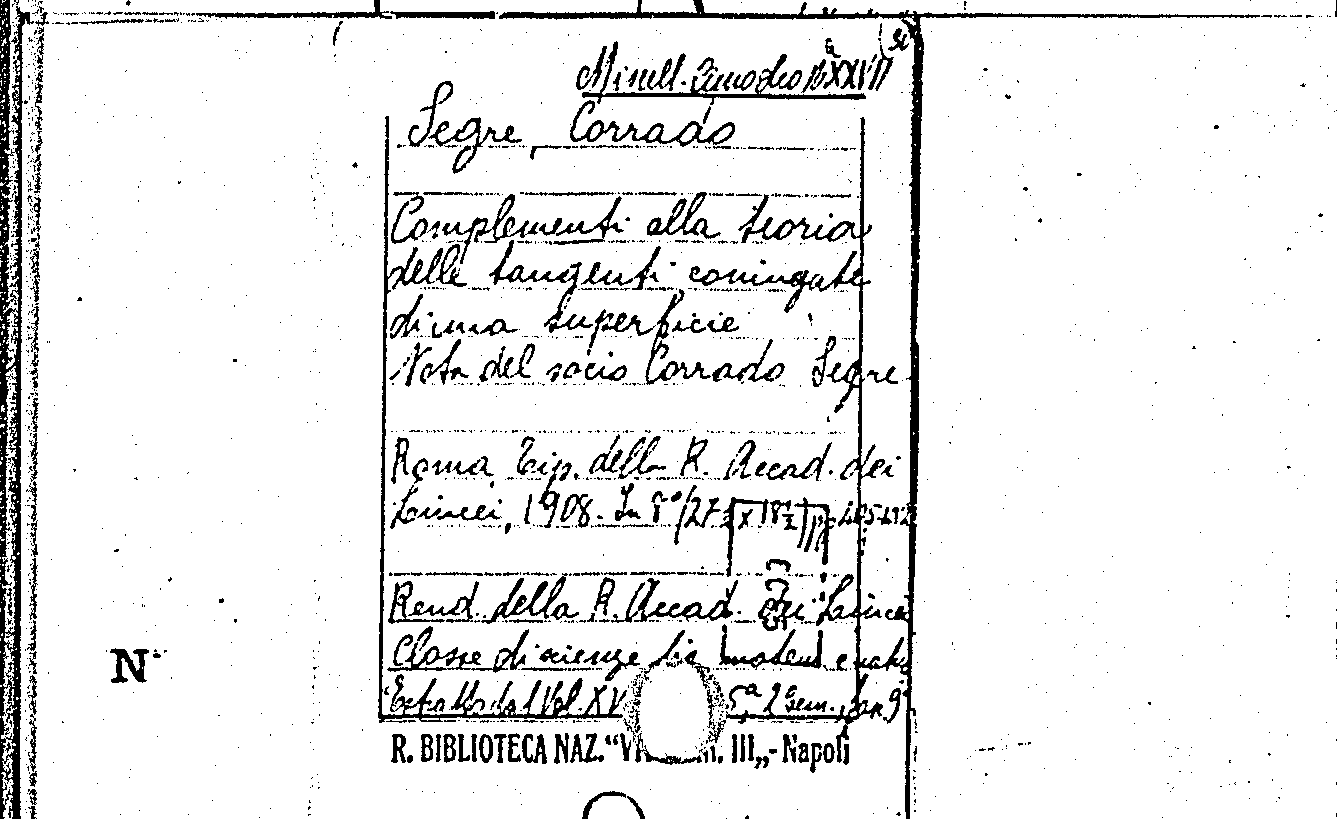 Segre, Corrado
Complementi alla teoria
delle tangenti coniugate
di una superficie
Nota del socio Corrado Segre
Roma, Tip. della R. Accad. dei
Lincei, 1908. In 8° (27 x 18½) pp.
Rend. della R. Accad. dei Lincei
Classe di scienze fis. matem. e nat.
Estratto dal Vol. XV 5ª, 2° sem.,
N
R. BIBLIOTECA NAZ. “ III„ - Napoli